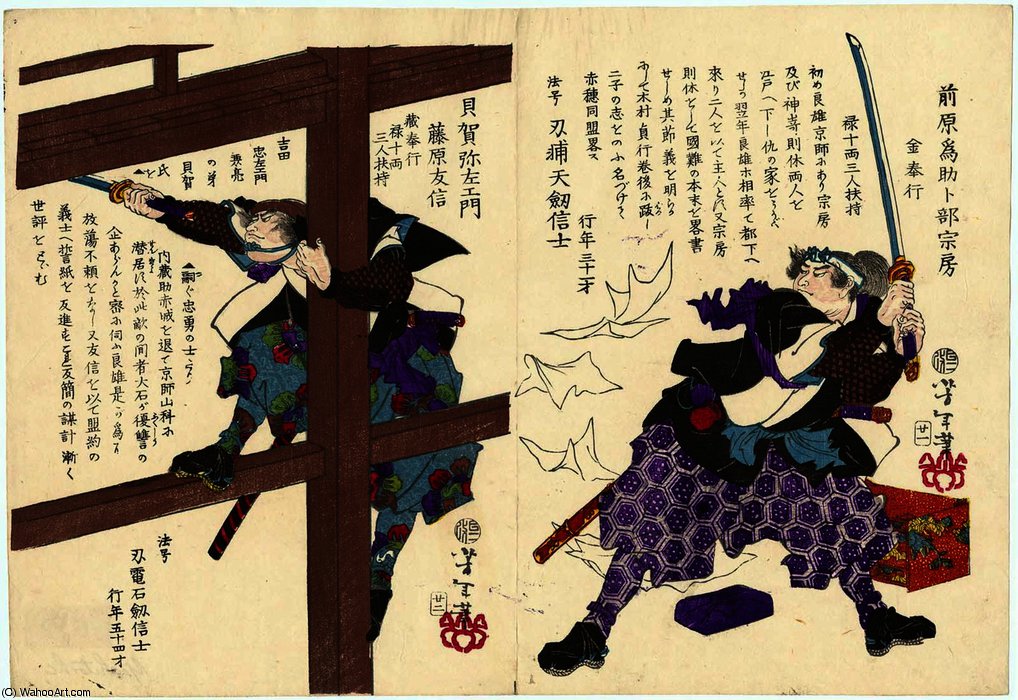 前原為助卜部宗房
金奉行
禄十両三人扶持
初め良雄京師にあり宗房
及び神嵜則休両人を
江戸へ下し仇の家を
せつ翌年良雄ホ相率て都下へ
來り二人を以て主人とす又宗房
則休をして國難の本末を畧書
せしめ其節義を明らる
にして木村貞行巻後に跋し
二子の志をのみ名づけて
赤穂同盟畧ス
行年三十一才
法号 刃補天劔信士
芳年筆
廿一
貝賀弥左エ門
藤原友信
蔵奉行
禄十両
三人扶持
吉田
忠左エ門
兼亮
の弟
貝賀
氏を
▲嗣ぐ忠勇の士なり
内蔵助赤城を退て京師山科に
潜居す於此敵の間者大石が復讐の
企あらんかと密に伺ふ良雄是が為に
放蕩不頼をなし又友信を以て盟約の
義士へ誓紙を反進す
簡の謀計漸く
世評をとむ
法号
刃電石劔信士
行年五十四才
芳年筆
廿二
(C) WahooArt.com